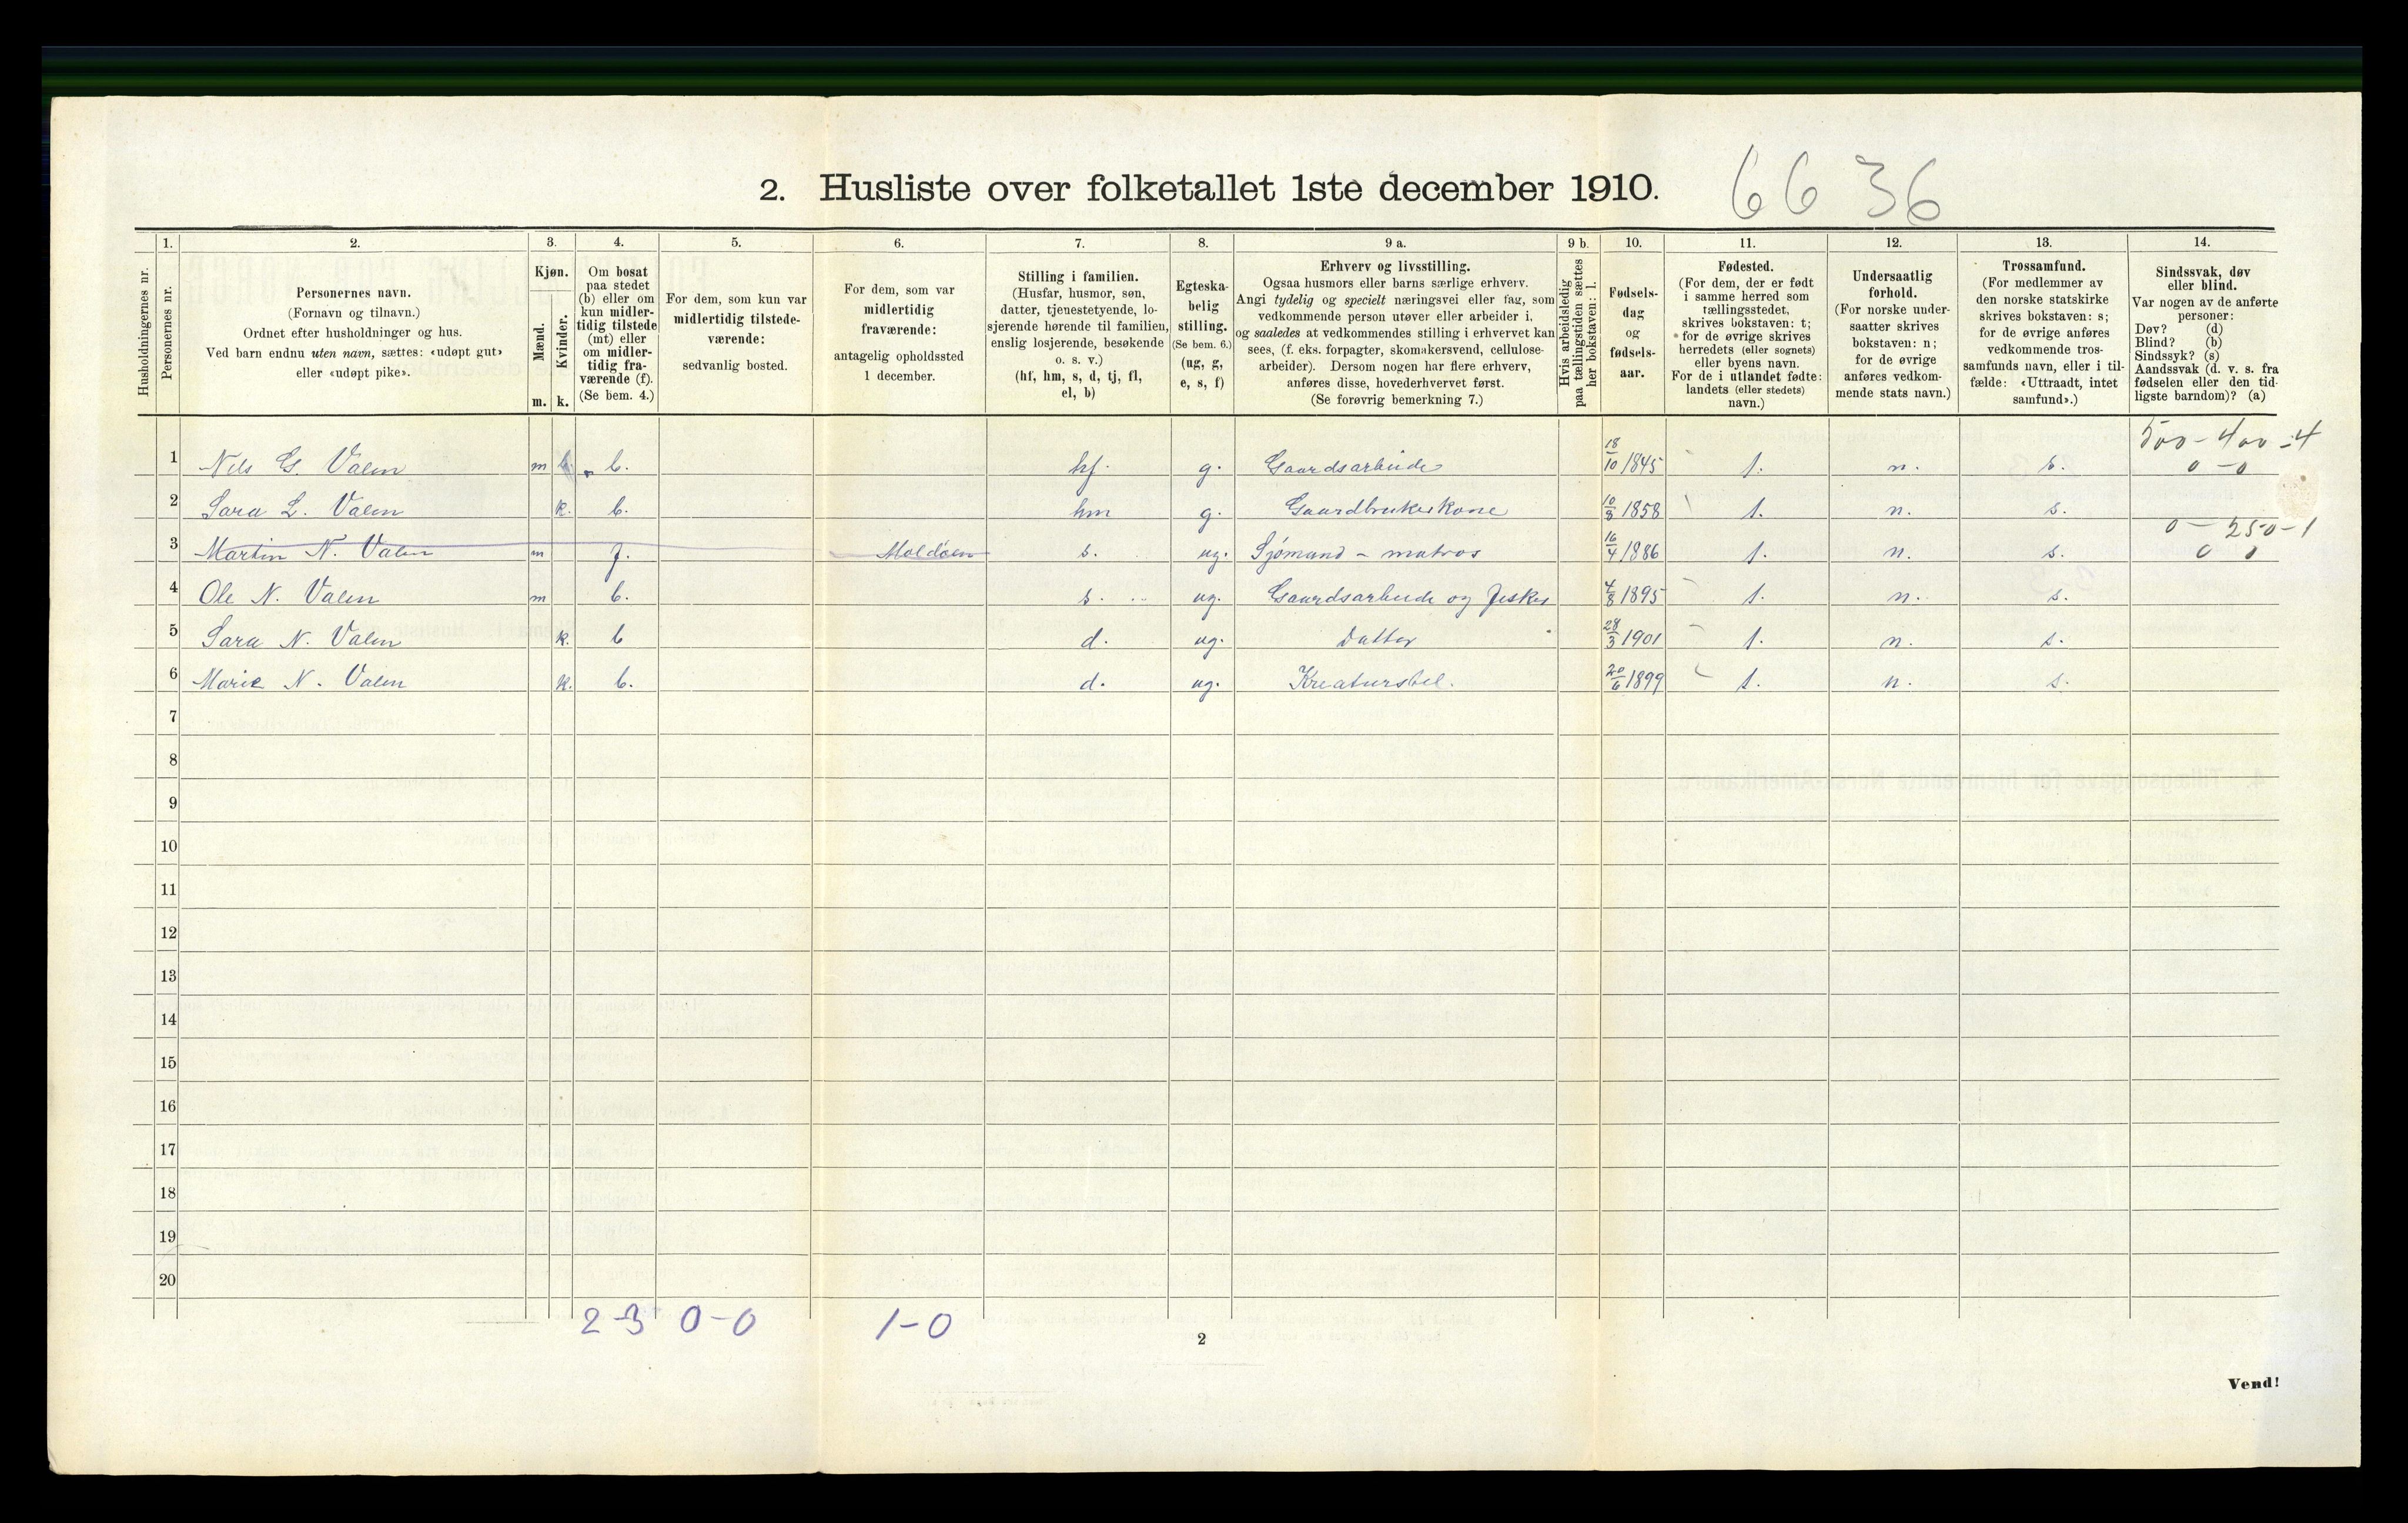 2. Husliste over folketallet 1ste december 1910. 66 36
1. 2. 3. 4. 5. 6. 7. 8. 9 a. 9 b. 10. 11. 12. 13. 14.
Husholdningernes nr.
Personernes nr.
Personernes navn.
(Fornavn og tilnavn.)
Ordnet efter husholdninger og hus.
Ved barn endnu uten navn, sættes: «udøpt gut»
eller «udøpt pike».
Kjøn.
Mænd.
m.
Kvinder.
k.
Om bosat
paa stedet
(b) eller om
kun midler-
tidig tilstede
(mt) eller
om midler-
tidig fra-
værende (f).
(Se bem. 4.)
For dem, som kun var
midlertidig tilstede-
værende:
sedvanlig bosted.
For dem, som var
midlertidig
fraværende:
antagelig opholdssted
1 december.
Stilling i familien.
(Husfar, husmor, søn,
datter, tjenestetyende, lo-
sjerende hørende til familien,
enslig losjerende, besøkende
o. s. v.)
(hf, hm, s, d, tj, fl,
el, b)
Egteska-
belig
stilling.
(Se bem. 6.)
(ug, g,
e, s, f)
Erhverv og livsstilling.
Ogsaa husmors eller barns særlige erhverv.
Angi tydelig og specielt næringsvei eller fag, som
vedkommende person utøver eller arbeider i,
og saaledes at vedkommendes stilling i erhvervet kan
sees, (f. eks. forpagter, skomakersvend, cellulose-
arbeider). Dersom nogen har flere erhverv,
anføres disse, hovederhvervet først.
(Se forøvrig bemerkning 7.)
Hvis arbeidsledig
paa tællingstiden sættes
her bokstaven: l.
Fødsels-
dag
og
fødsels-
aar.
Fødested.
(For dem, der er født
i samme herred som
tællingsstedet,
skrives bokstaven: t;
for de øvrige skrives
herredets (eller sognets)
eller byens navn.
For de i utlandet fødte:
landets (eller stedets)
navn.)
Undersaatlig
forhold.
(For norske under-
saatter skrives
bokstaven: n;
for de øvrige
anføres vedkom-
mende stats navn.)
Trossamfund.
(For medlemmer av
den norske statskirke
skrives bokstaven: s;
for de øvrige anføres
vedkommende tros-
samfunds navn, eller i til-
fælde: «Uttraadt, intet
samfund».)
Sindssvak, døv
eller blind.
Var nogen av de anførte
personer:
Døv? (d)
Blind? (b)
Sindssyk? (s)
Aandssvak (d. v. s. fra
fødselen eller den tid-
ligste barndom)? (a)
500-400-4
1 Nils G. Valen m b. hf. g. Gaardsarbeide 18/10 1845 t. n. s. 0-0
2 Sara L. Valen k. b. hm g. Gaardbrukerkone 10/8 1858 t. n. s.
0-250-1
3 Martin N. Valen m f. Moldöen s. ug. Sjömand - matros 16/4 1886 t. n. s. 0 0
4 Ole N. Valen m b. s. ug. Gaardsarbeide og Fisker 4/8 1895 t. n. s.
5 Sara N. Valen k. b d. ug. Datter 28/3 1901 t. n. s.
6 Marie N. Valen k. b. d. ug. Kreaturstel. 20/6 1899 t. n. s.
7
8
9
10
11
12
13
14
15
16
17
18
19
20
2-3 0-0 1-0
2
Vend!